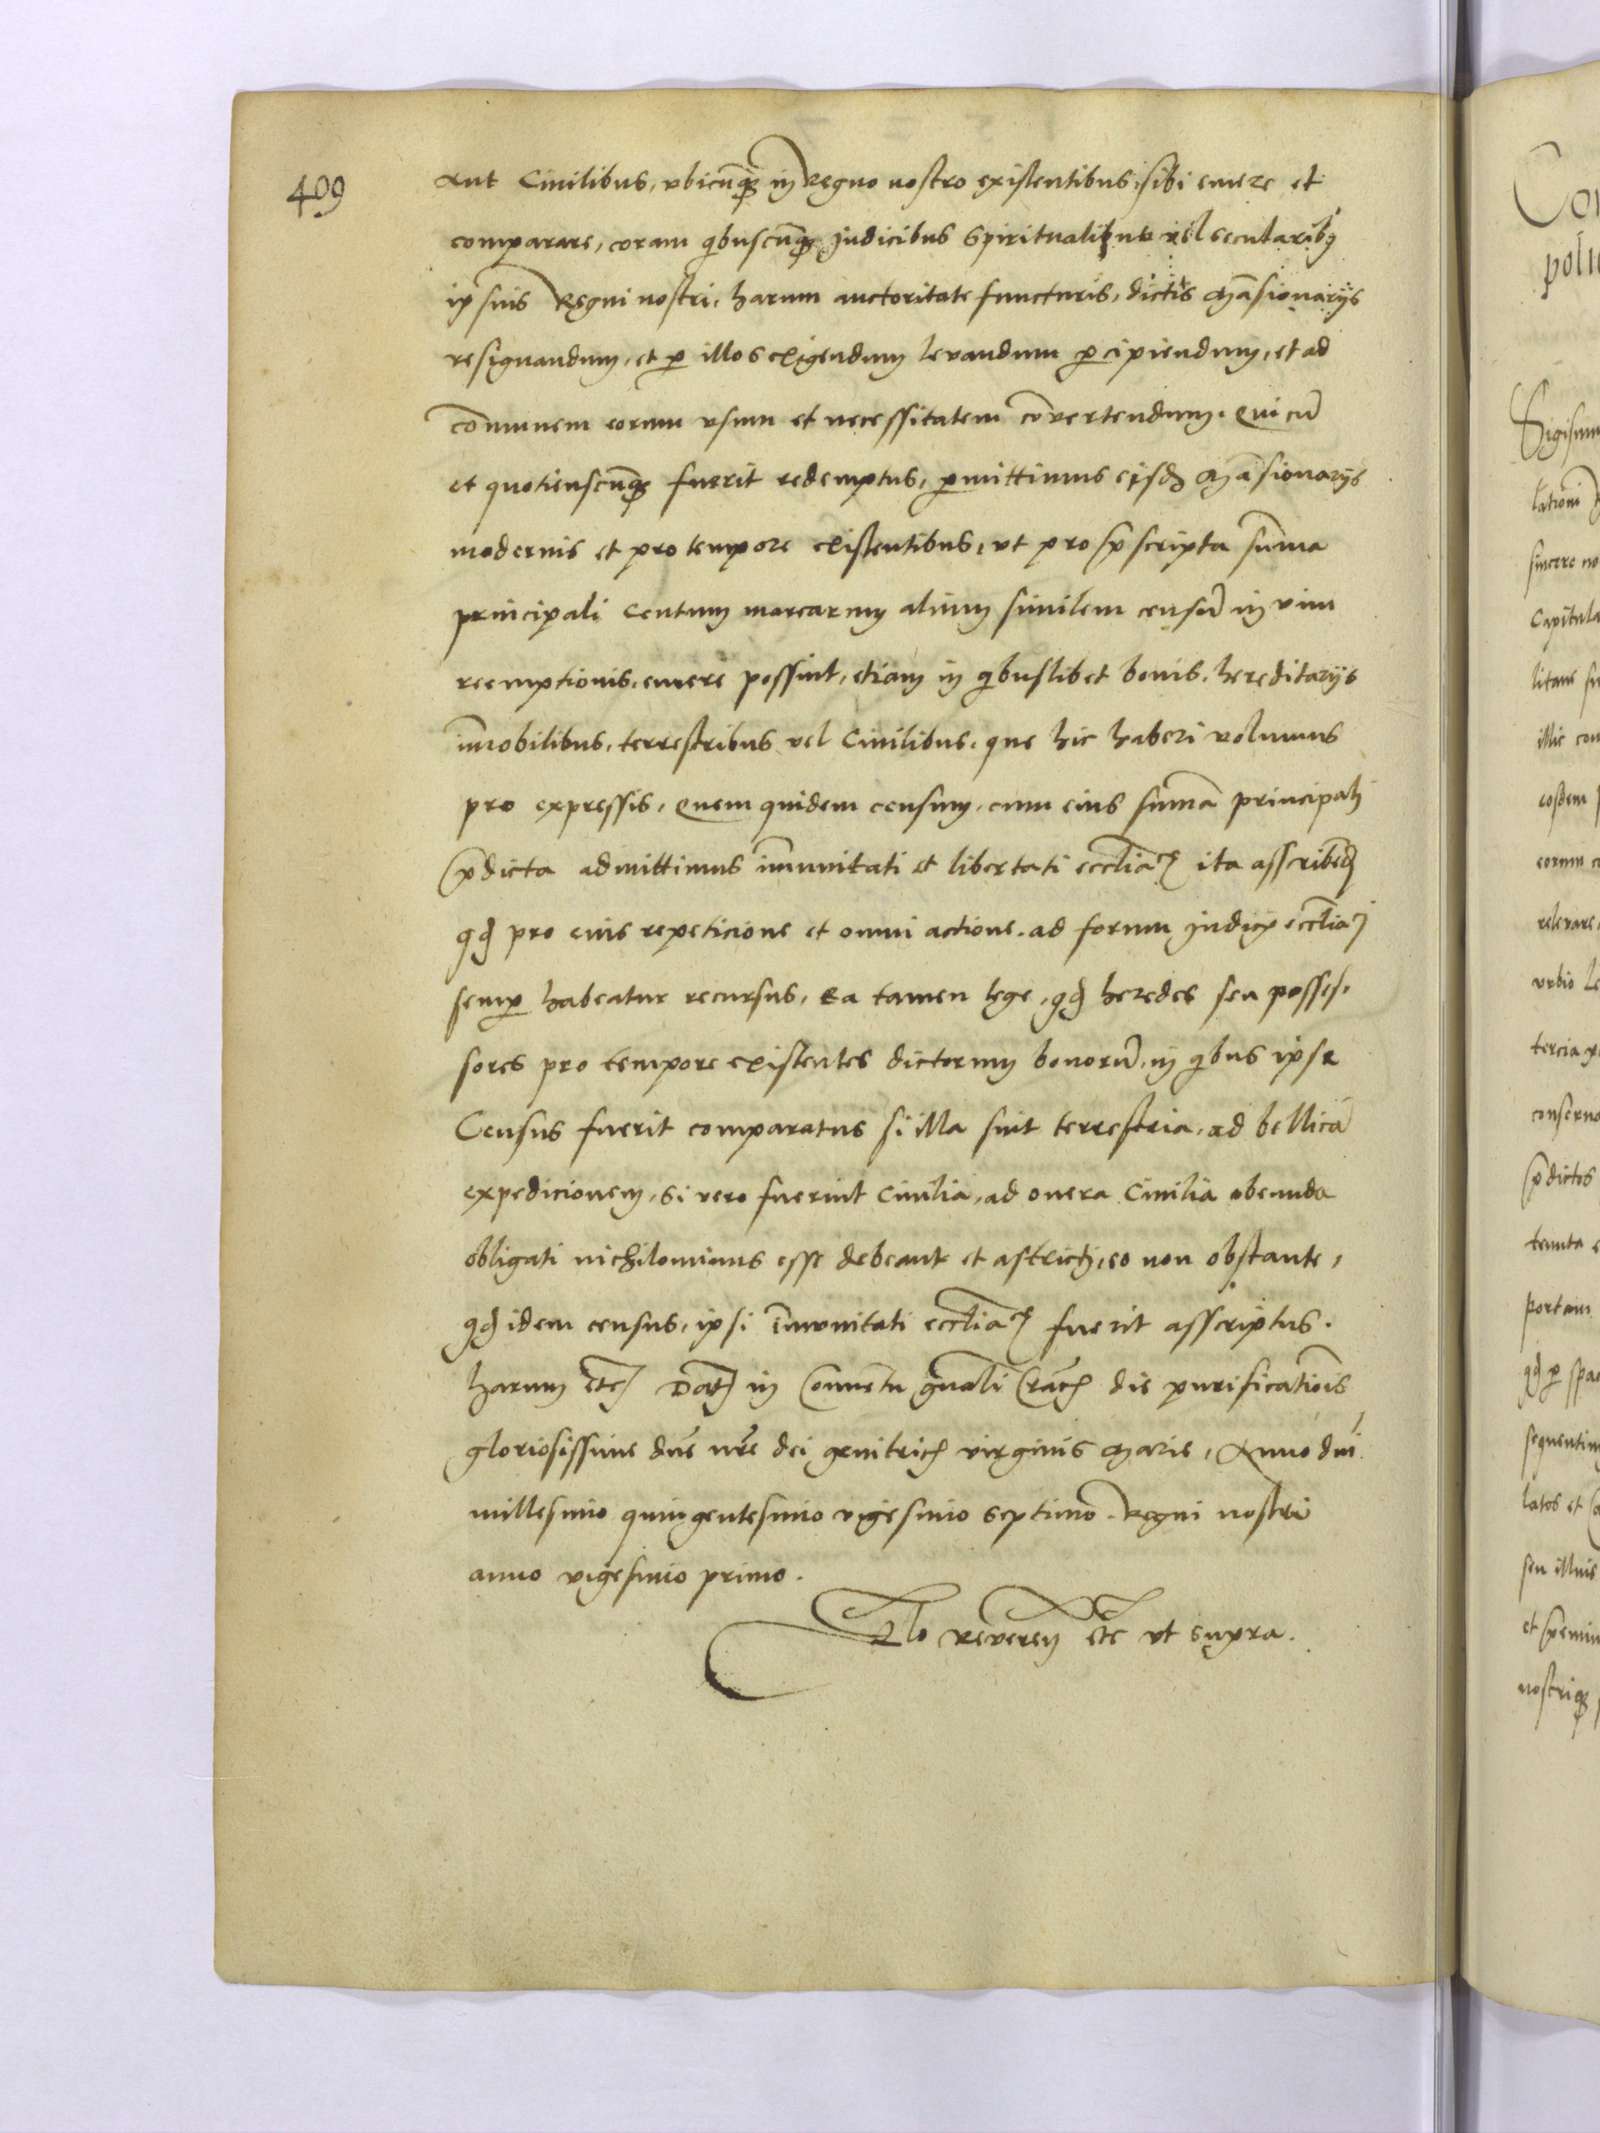 409
Aut Civilibus, ubicunque in Regno nostro existentibus, sibi emere et
comparare, coram quibuscunque judicibus spiritualibus vel secularibus
ipsius Regni nostri, harum auctoritate functuris, dictis Mansionariis
resignandum, et per illos exigendum levandum percipiendum, et ad
communem eorum usum et necessitatem convertendum. Qui cum
et quotienscunque fuerit redemptus, permittimus eisdem Mansionariis
modernis et pro tempore existentibus, ut pro prescripta summa
principali Centum marcarum alium similem censum in vim
reemptionis, emere possint, etiam in quibuslibet bonis, hereditariis
immobilibus, terrestribus vel Civilibus, que hic haberi volumus
pro expressis, Quem quidem censum, cum eius summa principali
predicta admittimus immunitati et libertati ecclesiastice ita asscribend
quod pro eius repeticione et omni actione, ad forum Judicii ecclesiastici
semper habeatur recursus, Ea tamen lege, quod heredes seu posses-
sores pro tempore existentes dictorum bonorum, in quibus ipse
Census fuerit comparatus si illa sint terrestria, ad bellicam
expedicionem, si vero fuerint Civilia, ad onera Civilia obeunda
obligati nichilominus esse debeant et astricti, eo non obstante,
quod idem census, ipsi immunitati ecclesiastice fuerit asscriptus.
harum etc Dat in Conventu generali Crac die purificationis
gloriosissime domine nostre dei genitricis virginis Marie, Anno domini
millesimo quingentesimo vigesimo septimo. Regni nostri
anno vigesimo primo.
Relo reveren etc ut supra.